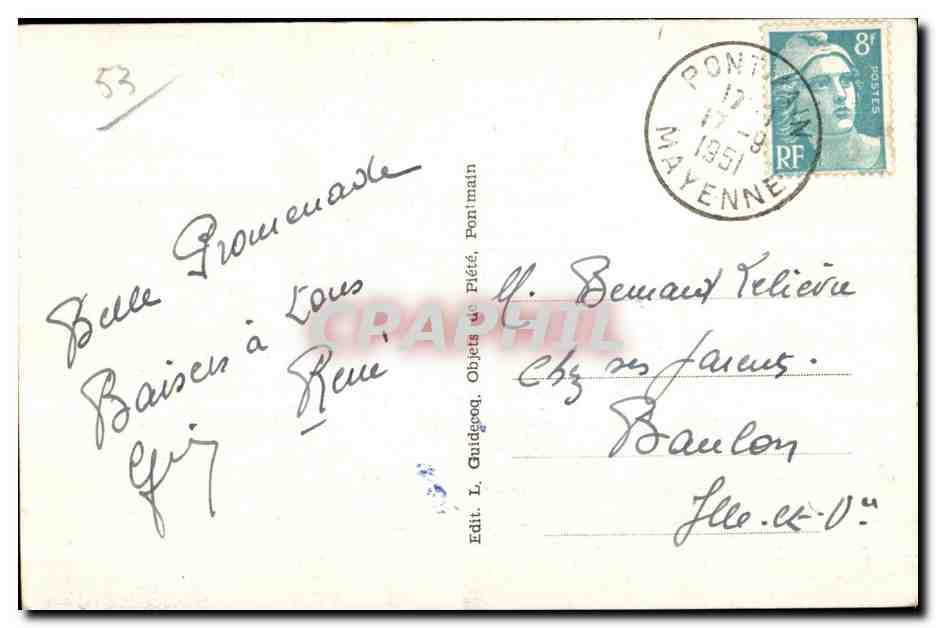 53
Belle Promenade
Baisers à tous
René
Edit. L. Guidecoq, Objets de Piété, Pontmain
PONTMAIN
17
17 -9
1951
MAYENNE
8f
POSTES
RF
M. Bernard Lelièvre
Chez ses parents.
Baulon
Ille-et-V
CPAPHIL